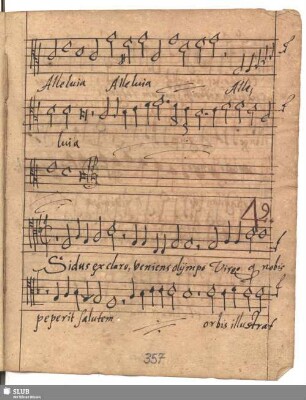 Alleluia Alleluia Alle,
luia
49.
Sidus ex claro, veniens olÿmpo Virgo q nobis
peperit salutem orbis illustrat
357
SLUB